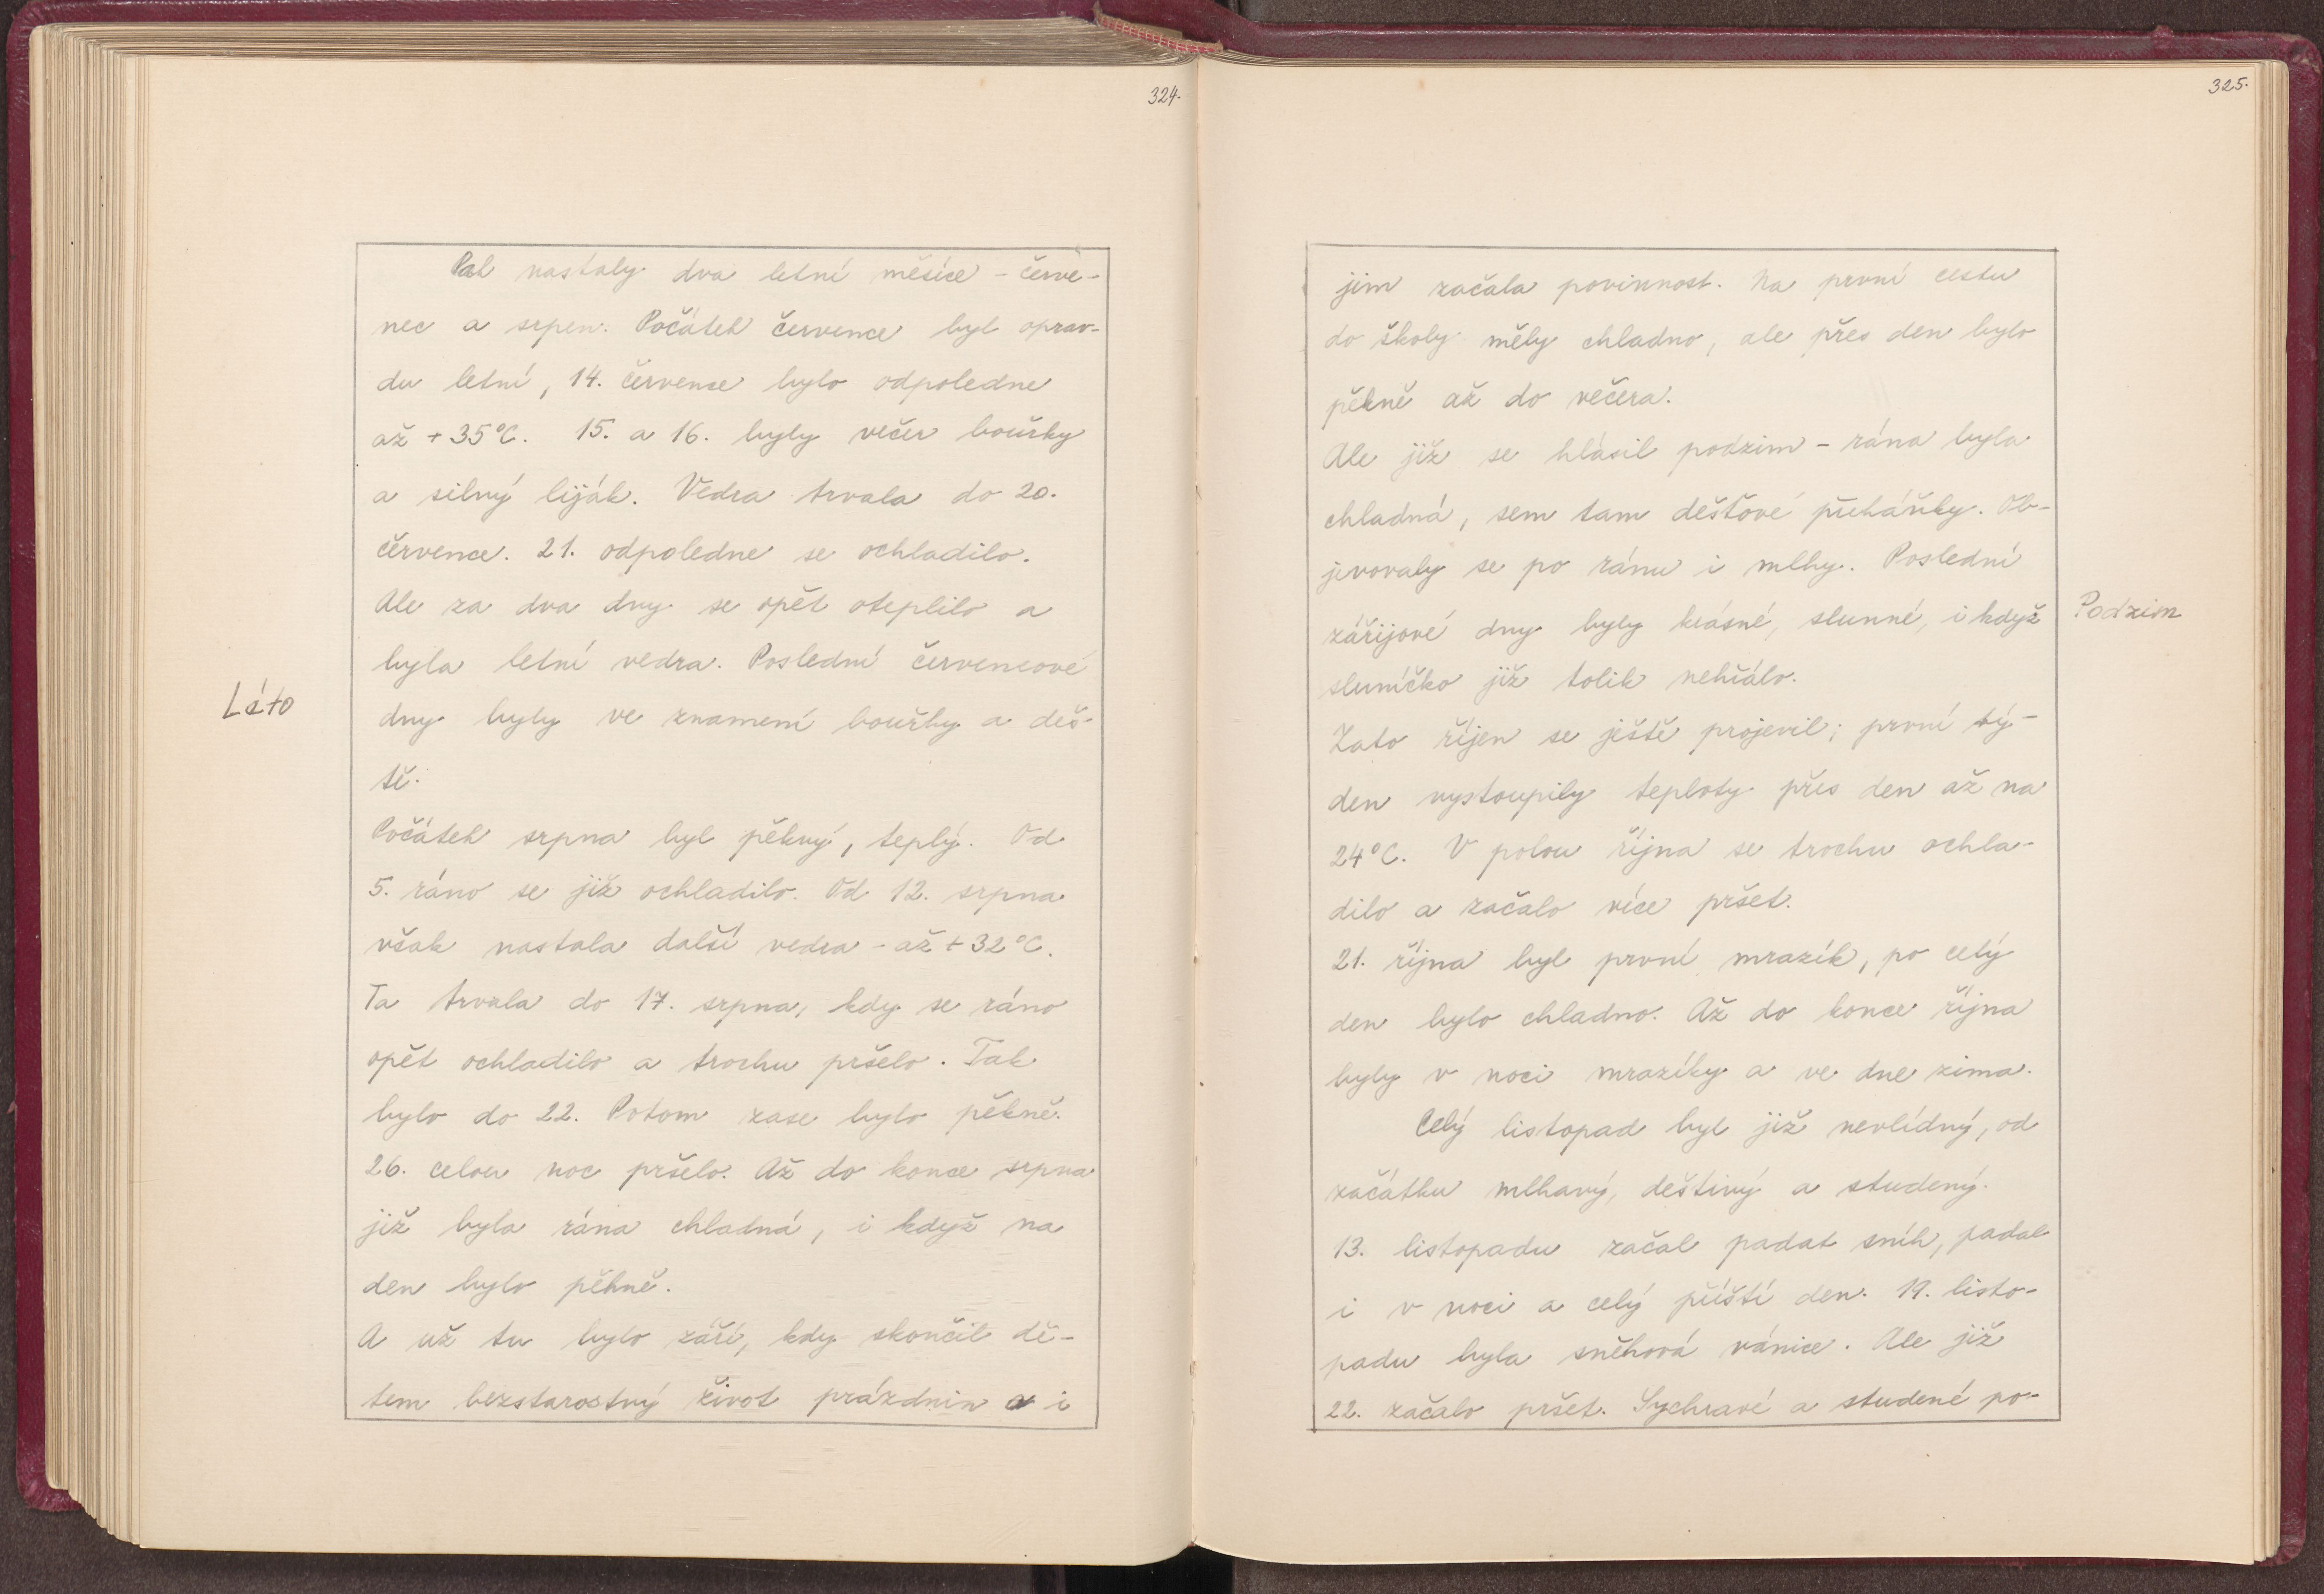 324.
Pak nastaly dva letní měsíce - červe-
nec a srpen. Počátek července byl oprav-
du letní, 14. července bylo odpoledne
až + 35°C. 15. a 16. byly večer bouřky
a silný liják. Vedra trvala do 20.
července. 21. odpoledne se ochladilo.
Ale za dva dny se opět oteplilo a
byla letní vedra. Poslední červencové
Léto
dny byly ve znamení bouřky a deš-
tě.
Počátek srpna byl pěkný, teplý. Od
5. ráno se již ochladilo. Od 12. srpna
však nastala další vedra - až + 32°C.
Ta trvala do 17. srpna, kdy se ráno
opět ochladilo a trochu pršelo. Tak
bylo do 22. Potom zase bylo pěkně.
26. celou noc pršelo. Až do konce srpna
již byla rána chladná, i když na
den bylo pěkně.
A už tu bylo září, kdy skončil dě-
tem bezstarostný život prázdnin a i
325.
jim začala povinnost. Na první cestu
do školy měly chladno, ale přes den bylo
pěkně až do večera.
Ale již se hlásil podzim - rána byla
chladná, sem tam dešťové přeháňky. Ob-
jevovaly se po ránu i mlhy. Poslední
zářijové dny byly krásné, slunné, i když
Podzim
sluníčko již tolik nehřálo.
Zato říjen se ještě projevil; první tý-
den vystoupily teploty přes den až na
24°C. V polou října se trochu ochla-
dilo a začalo více pršet.
21. října byl první mrazík, po celý
den bylo chladno. Až do konce října
byly v noci mrazíky a ve dne zima.
Celý listopad byl již nevlídný, od
začátku mlhavý, deštivý a studený.
13. listopadu začal padat sníh, padal
i v noci a celý příští den. 19. listo-
padu byla sněhová vánice. Ale již
22. začalo pršet. Sychravé a studené po-